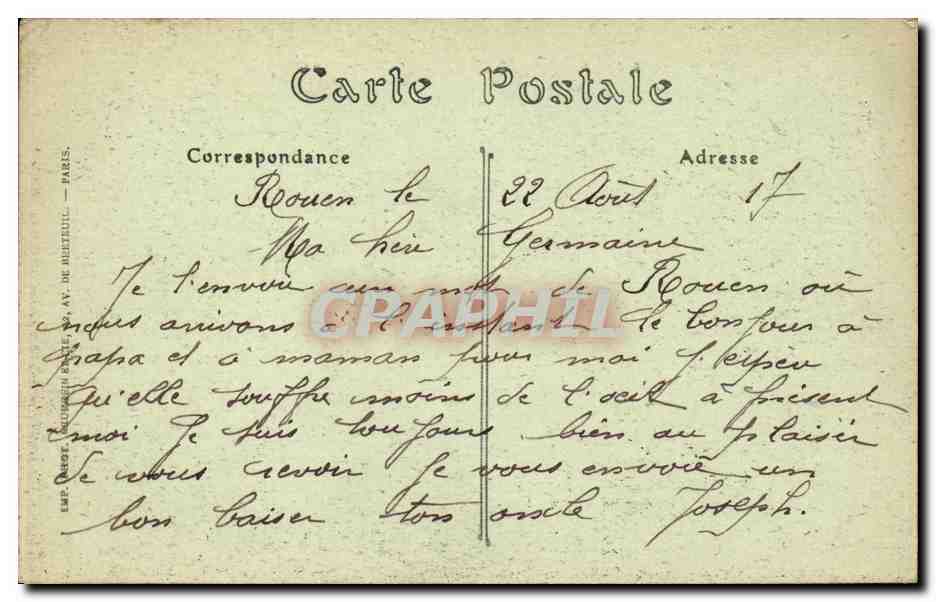 Carte Postale
Correspondance
Adresse
Rouen le 22 Août 17
Ma
Germaine
Je t'envoie un mot de Rouen où
nous arrivons à l'instant le bonjour à
papa et à maman pour moi J'espère
qu'elle souffre moins de l'oeil à présent
moi Je suis toujours bien au plaisir
de vous revoir Je vous envoie un
bon baiser ton oncle Joseph.
AV. DE BRETEUIL. — PARIS.
CPAPHIL